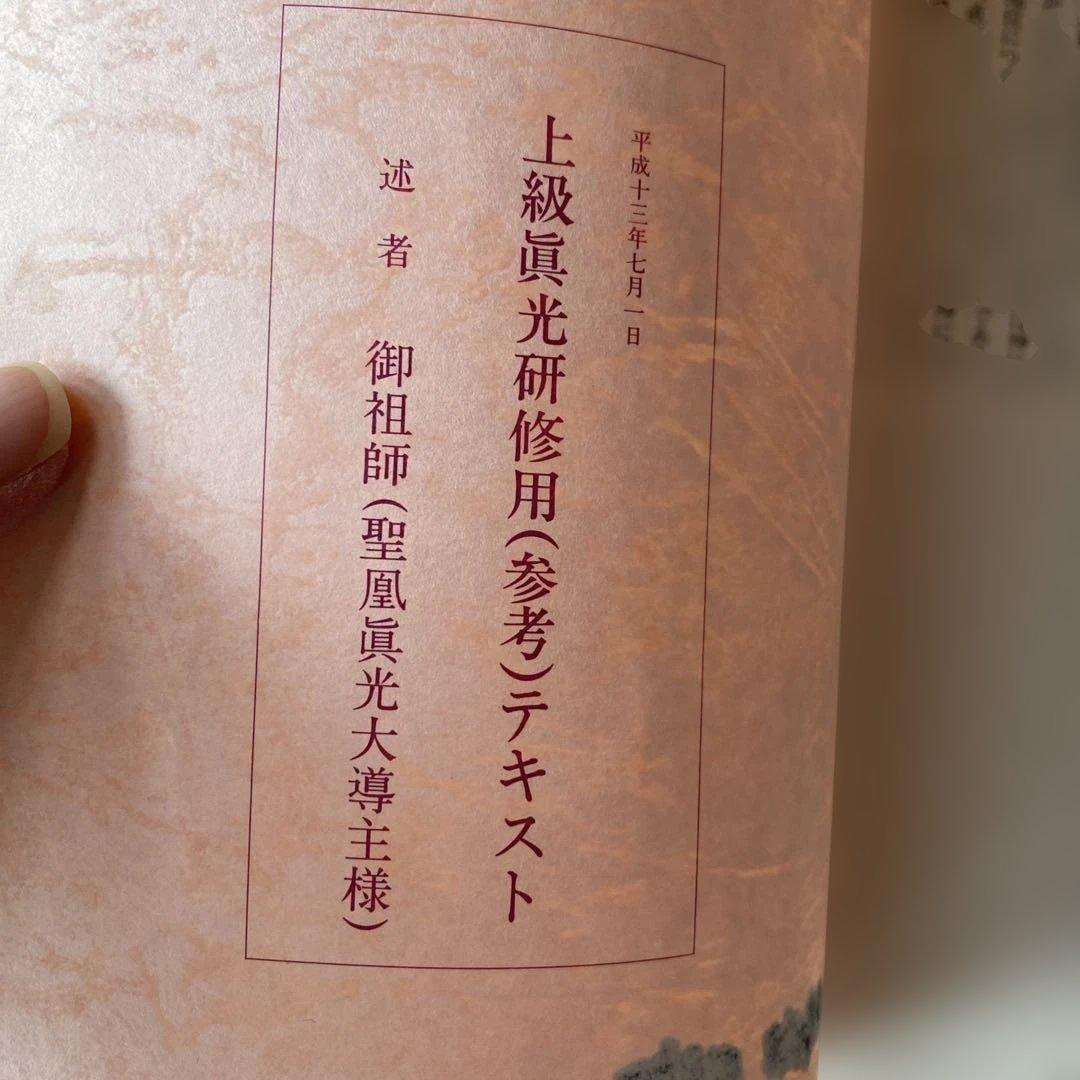 平成十三年七月一日
上級眞光研修用(参考)テキスト
述者 御祖師(聖凰眞光大導主様)